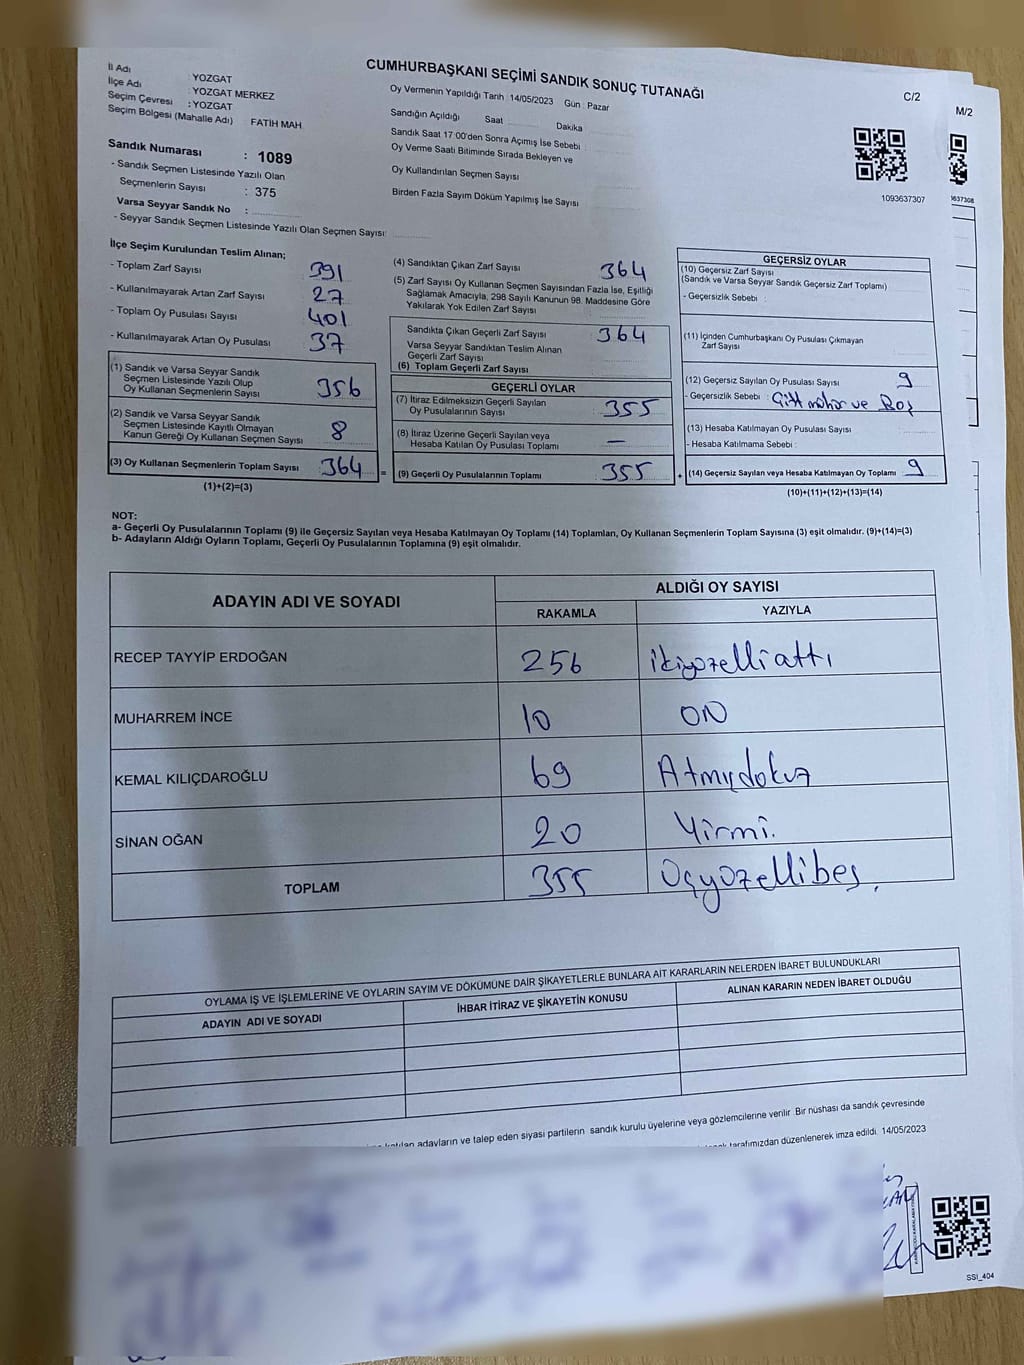 CUMHURBAŞKANI SEÇİMİ SANDIK SONUÇ TUTANAĞI
C/2
M/2
İl Adı : YOZGAT
İlçe Adı : YOZGAT MERKEZ
Seçim Çevresi : YOZGAT
Seçim Bölgesi (Mahalle Adı) FATİH MAH
Oy Vermenin Yapıldığı Tarih : 14/05/2023 Gün : Pazar
Sandığın Açıldığı Saat Dakika
Sandık Saat 17:00'den Sonra Açımış İse Sebebi :
Oy Verme Saati Bitiminde Sırada Bekleyen ve
Oy Kullandırılan Seçmen Sayısı
Birden Fazla Sayım Döküm Yapılmış İse Sayısı
1093637307
Sandık Numarası : 1089
- Sandık Seçmen Listesinde Yazılı Olan
Seçmenlerin Sayısı : 375
Varsa Seyyar Sandık No :
- Seyyar Sandık Seçmen Listesinde Yazılı Olan Seçmen Sayısı:
İlçe Seçim Kurulundan Teslim Alınan;
- Toplam Zarf Sayısı 391
- Kullanılmayarak Artan Zarf Sayısı 27
- Toplam Oy Pusulası Sayısı 401
- Kullanılmayarak Artan Oy Pusulası 37
(1) Sandık ve Varsa Seyyar Sandık
Seçmen Listesinde Yazılı Olup
Oy Kullanan Seçmenlerin Sayısı 356
(2) Sandık ve Varsa Seyyar Sandık
Seçmen Listesinde Kayıtlı Olmayan
Kanun Gereği Oy Kullanan Seçmen Sayısı 8
(3) Oy Kullanan Seçmenlerin Toplam Sayısı 364 =
(1)+(2)=(3)
(4) Sandıktan Çıkan Zarf Sayısı 364
(5) Zarf Sayısı Oy Kullanan Seçmen Sayısından Fazla İse, Eşitliği
Sağlamak Amacıyla, 298 Sayılı Kanunun 98. Maddesine Göre
Yakılarak Yok Edilen Zarf Sayısı
Sandıkta Çıkan Geçerli Zarf Sayısı 364
Varsa Seyyar Sandıktan Teslim Alınan
Geçerli Zarf Sayısı
(6) Toplam Geçerli Zarf Sayısı
GEÇERLİ OYLAR
(7) İtiraz Edilmeksizin Geçerli Sayılan
Oy Pusulalarının Sayısı 355
(8) İtiraz Üzerine Geçerli Sayılan veya
Hesaba Katılan Oy Pusulası Toplamı —
(9) Geçerli Oy Pusulalarının Toplamı 355 +
GEÇERSİZ OYLAR
(10) Geçersiz Zarf Sayısı
(Sandık ve Varsa Seyyar Sandık Geçersiz Zarf Toplamı)
- Geçersizlik Sebebi :
(11) İçinden Cumhurbaşkanı Oy Pusulası Çıkmayan
Zarf Sayısı
(12) Geçersiz Sayılan Oy Pusulası Sayısı 9
- Geçersizlik Sebebi : Çift mühür ve Boş
(13) Hesaba Katılmayan Oy Pusulası Sayısı
- Hesaba Katılmama Sebebi :
(14) Geçersiz Sayılan veya Hesaba Katılmayan Oy Toplamı 9
(10)+(11)+(12)+(13)=(14)
NOT:
a- Geçerli Oy Pusulalarının Toplamı (9) ile Geçersiz Sayılan veya Hesaba Katılmayan Oy Toplamı (14) Toplamları, Oy Kullanan Seçmenlerin Toplam Sayısına (3) eşit olmalıdır. (9)+(14)=(3)
b- Adayların Aldığı Oyların Toplamı, Geçerli Oy Pusulalarının Toplamına (9) eşit olmalıdır.
ADAYIN ADI VE SOYADI
ALDIĞI OY SAYISI
RAKAMLA YAZIYLA
RECEP TAYYİP ERDOĞAN 256 ikiyüzelliattı
MUHARREM İNCE 10 ON
KEMAL KILIÇDAROĞLU 69 Atmışdokuz
SİNAN OĞAN 20 Yirmi.
TOPLAM 355 Üçyüzellibeş.
OYLAMA İŞ VE İŞLEMLERİNE VE OYLARIN SAYIM VE DÖKÜMÜNE DAİR ŞİKAYETLERLE BUNLARA AİT KARARLARIN NELERDEN İBARET BULUNDUKLARI
ADAYIN ADI VE SOYADI İHBAR İTİRAZ VE ŞİKAYETİN KONUSU ALINAN KARARIN NEDEN İBARET OLDUĞU
adayların ve talep eden siyasi partilerin sandık kurulu üyelerine veya gözlemcilerine verilir. Bir nüshası da sandık çevresinde
tarafımızdan düzenlenerek imza edildi. 14/05/2023
SSI_404